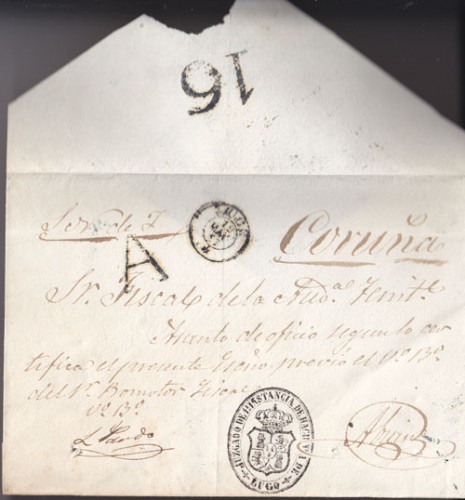 16
S. N. de I.
Coruña
A
Sr. Fiscal de la Aud.ª Territ.
Asunto de oficio segun lo cer
tifica el presente Essño, previo el Vº Bº
del Sr. Promotor Fiscal
Vº Bº
L. Pardo
JUZGADO DE 1ª INSTANCIA DE HACIENDA DE
LUGO